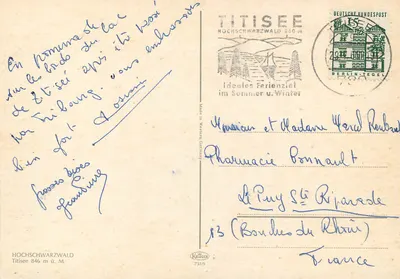 En promenade
sur les bords du lac
de Titisée après être passé
par Fribourg. vous embrasses
bien fort.
grosses bises
TITISEE
HOCHSCHWARZWALD
Ideales Ferienziel
im Sommer u. Winter
DEUTSCHE BUNDESPOST
BERLIN-TEGEL
Monsieur et Madame
Pharmacie Bonnault
Le Puy Ste Réparade
13 (Bouches du Rhône)
France
HOCHSCHWARZWALD
Titisee 846 m ü. M.